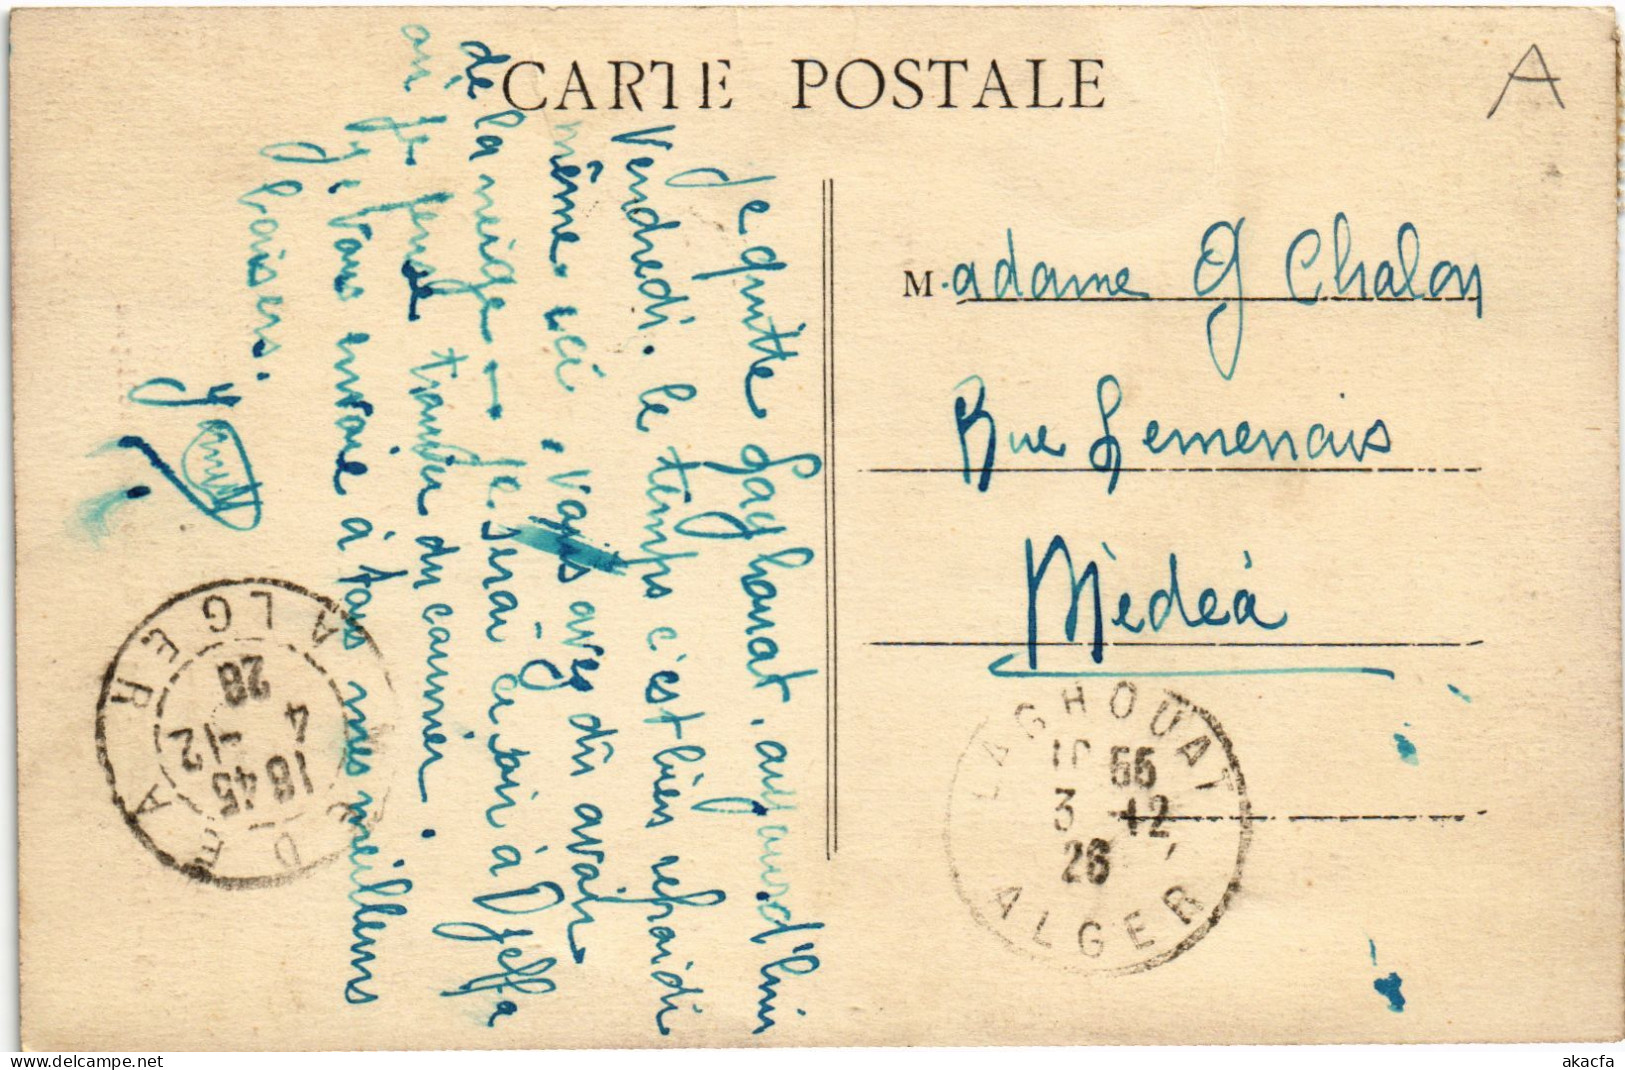 CARTE POSTALE
A
Je quitte Laghouat, aujourd'hui
Vendredi. le temps c'est bien refroidi
même ici, Vous avez dû avoir
de la neige — Je serai ce soir à Djelfa
où je pense trouver du courrier.
Je vous envoie à tous mes meilleurs
baisers.
Madame G Chalon
Rue Lemenais
Mèdéà
LAGHOUAT
55
3 -12
26
ALGER
MEDEA
1845
4 -12
28
ALGER
akacfa